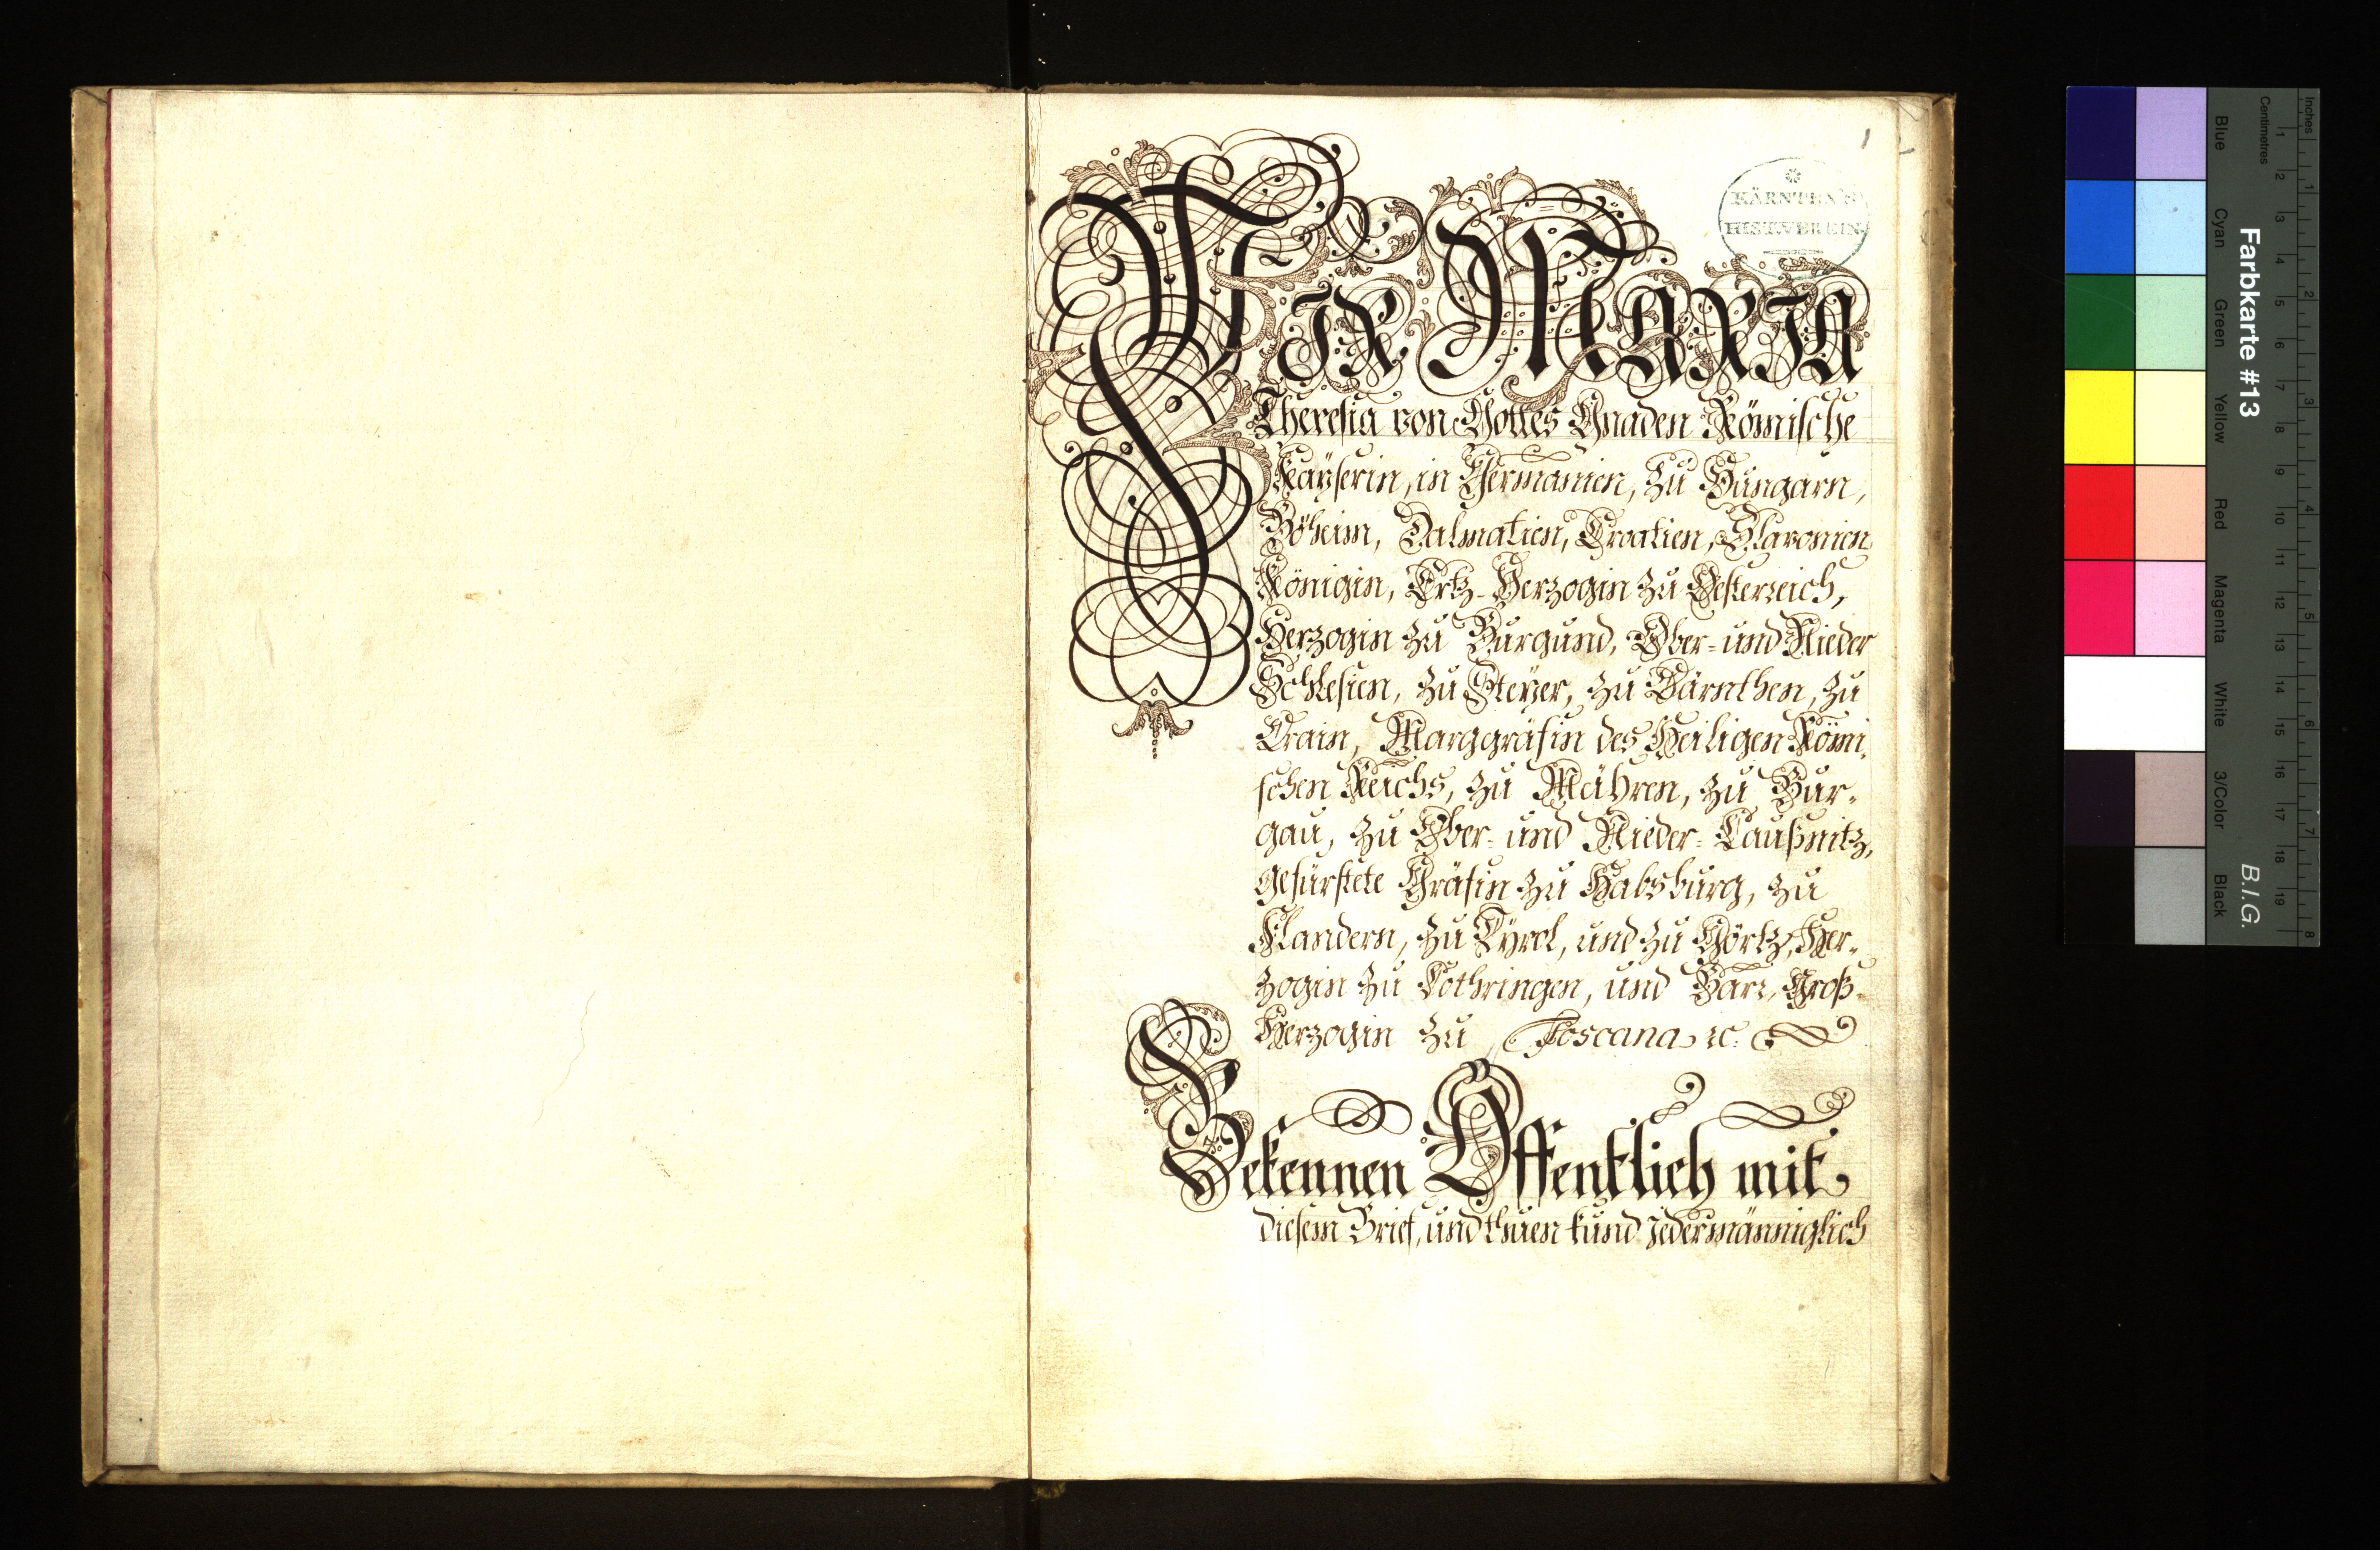 1
KÄRNTEN'S
HIST. VEREIN
WIR MARIA
Theresia von Gottes Gnaden Römische
Kaÿserin, in Germanien, zu Hungarn,
Böheim, Dalmatien, Croatien, Slavonien
Königin, Ertz-Herzogin zu Oesterreich,
Herzogin zu Burgund, Ober- und Nieder
Schlesien, zu Steÿer, zu Kärnthen, zu
Crain, Marggräfin des Heiligen Römi-
schen Reichs, zu Mähren, zu Bur-
gau, zu Ober- und Nieder-Laußnitz,
gefürstete Gräfin zu Habsburg, zu
Flandern, zu Tÿrol, und zu Görtz, Her-
zogin zu Lothringen, und Barr, Groß-
Herzogin zu Toscana ꝛc.
Bekennen Öffentlich mit
diesem Brief, und thuen kund jedermänniglich
Farbkarte #13
B.I.G.
Inches
1 2 3 4 5 6 7 8
Centimetres
1 2 3 4 5 6 7 8 9 10 11 12 13 14 15 16 17 18 19
Blue
Cyan
Green
Yellow
Red
Magenta
White
3/Color
Black